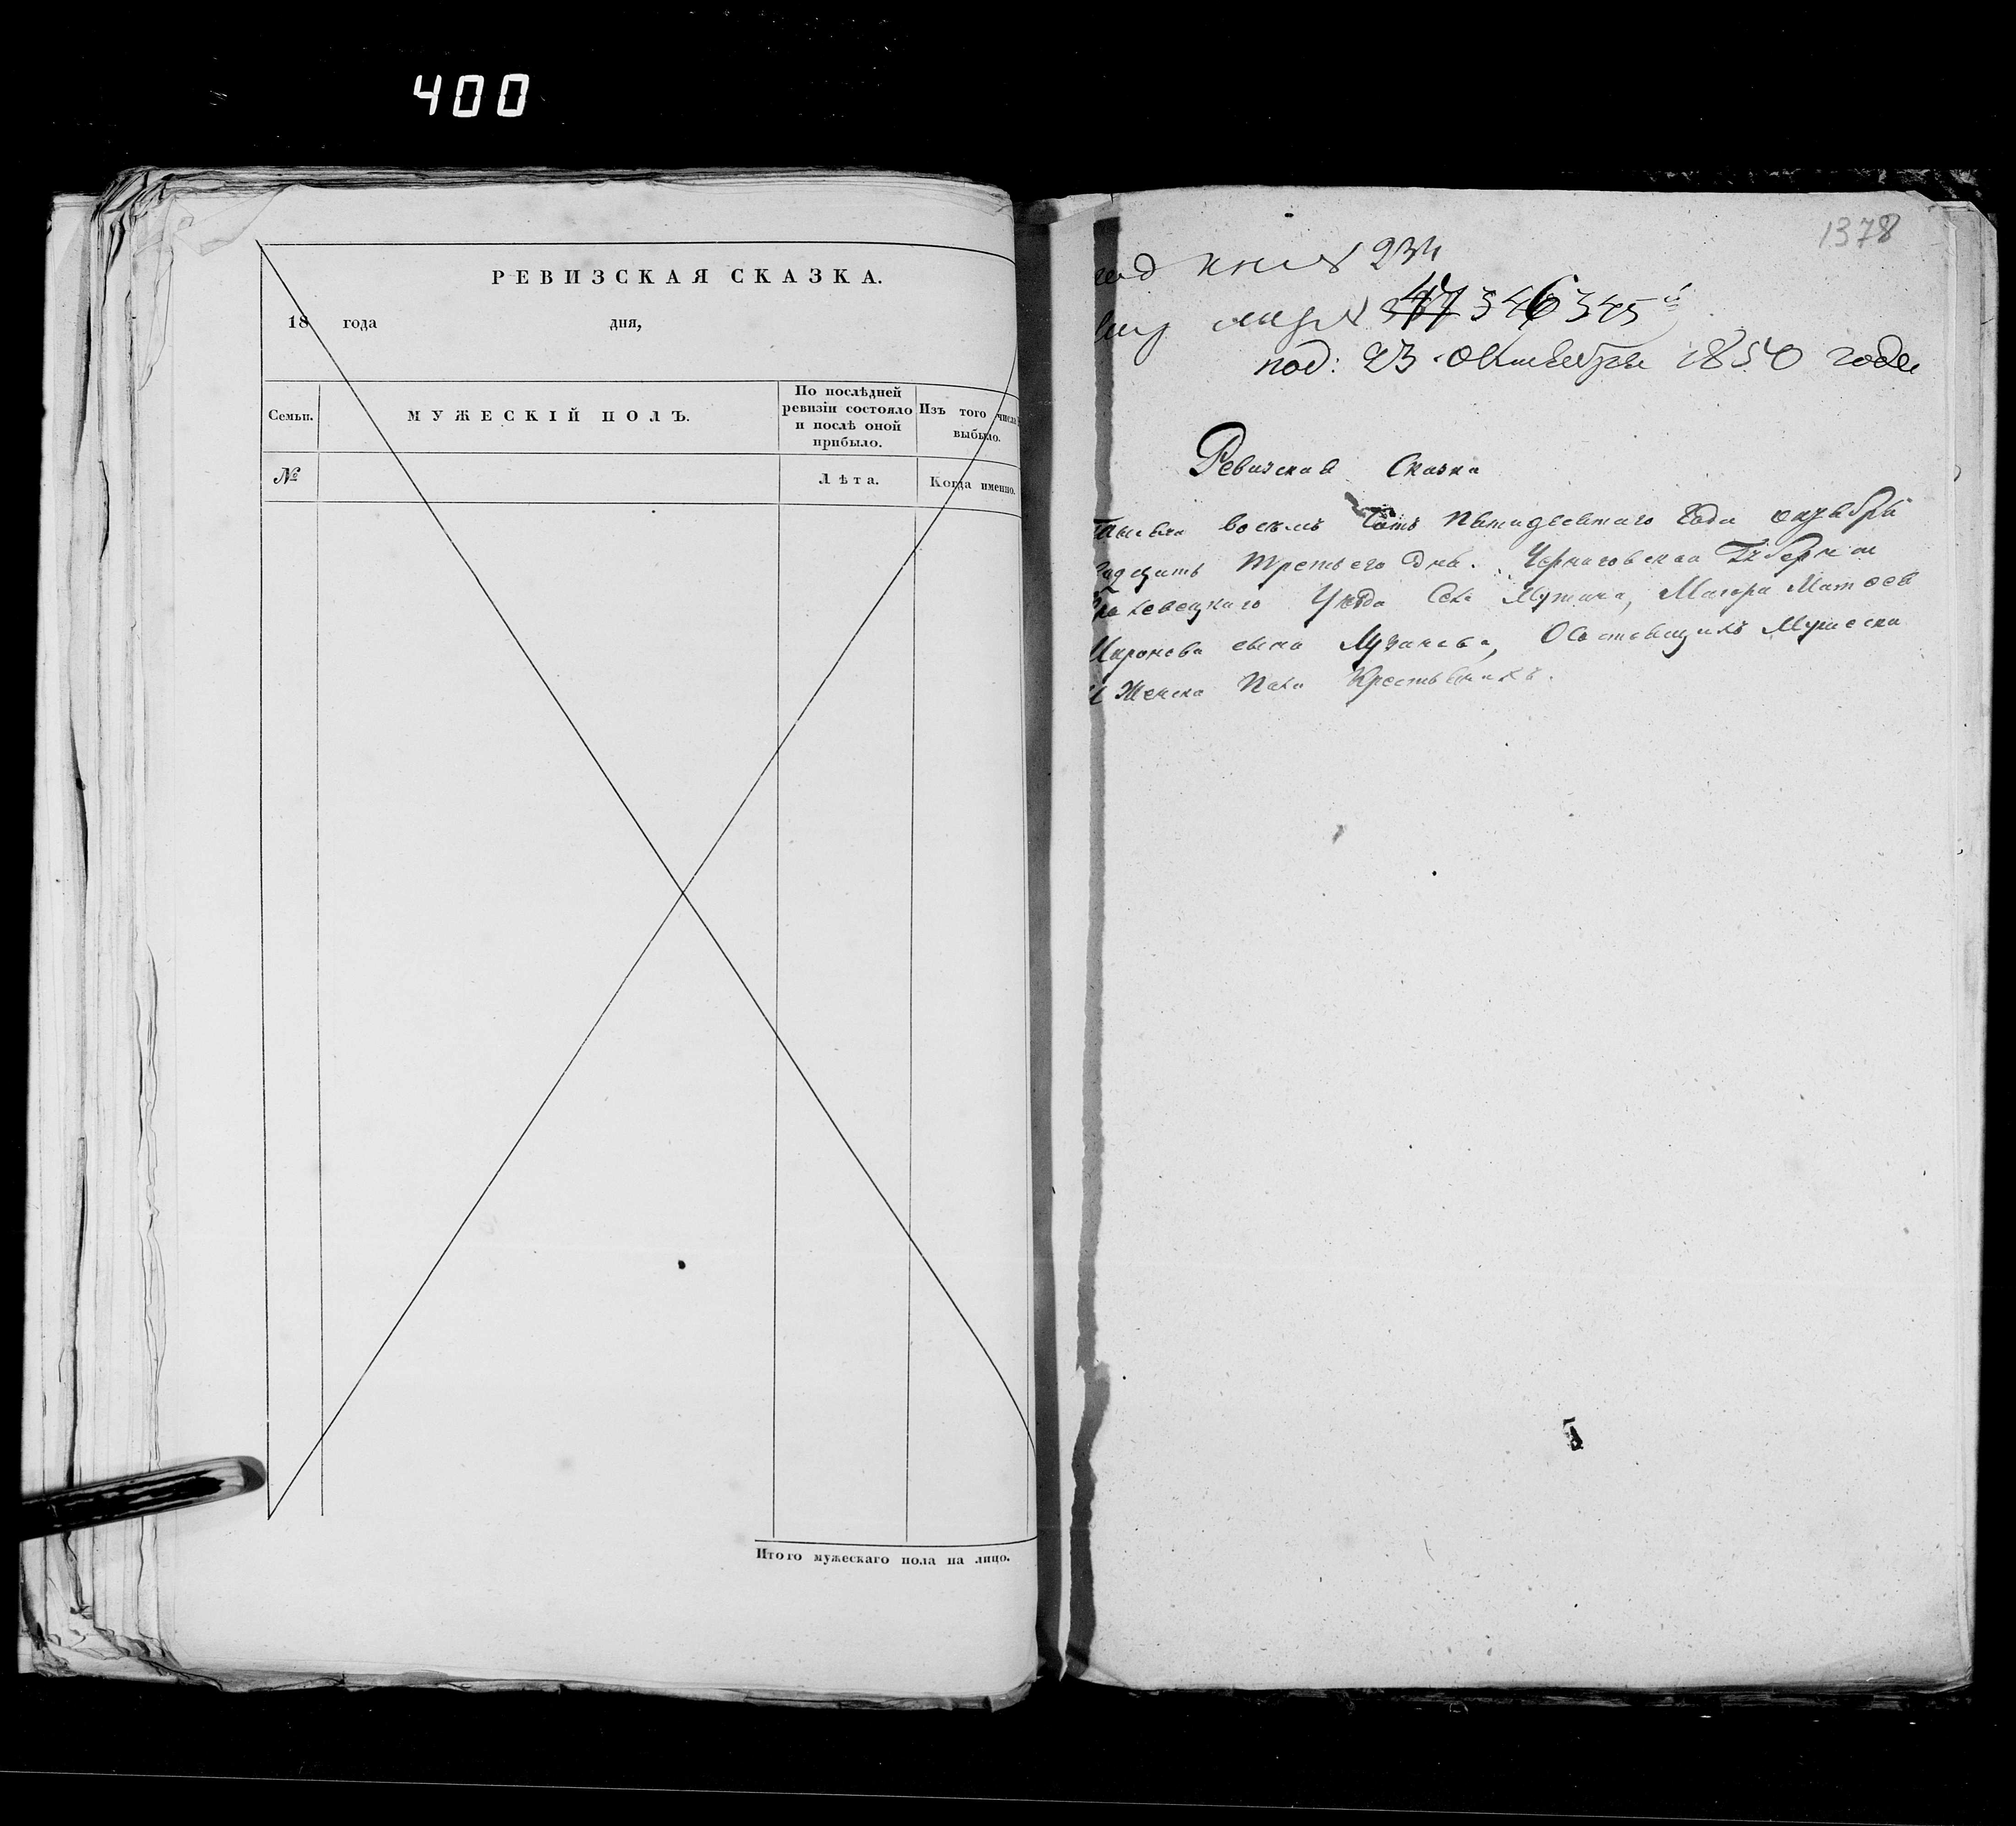 400
РЕВИЗСКАЯ СКАЗКА.
18 года дня,
Семьи.
МУЖЕСКІЙ ПОЛЪ.
По послѣдней ревизіи состояло и послѣ оной прибыло.
Изъ того числа выбыло.
№
Лѣта.
Когда именно.
Итого мужескаго пола на лицо.
1378
234
346 345
под: 23 октября 1850 года
Ревизская Сказка
восемь Сотъ Пятидесятаго Года
третьего дня. Черниговской Губернии
Уезда Села Мутина, Маіора Матвея
Миронова сына Состоящихъ Мужеска
И Женска Пола Крестьянахъ.